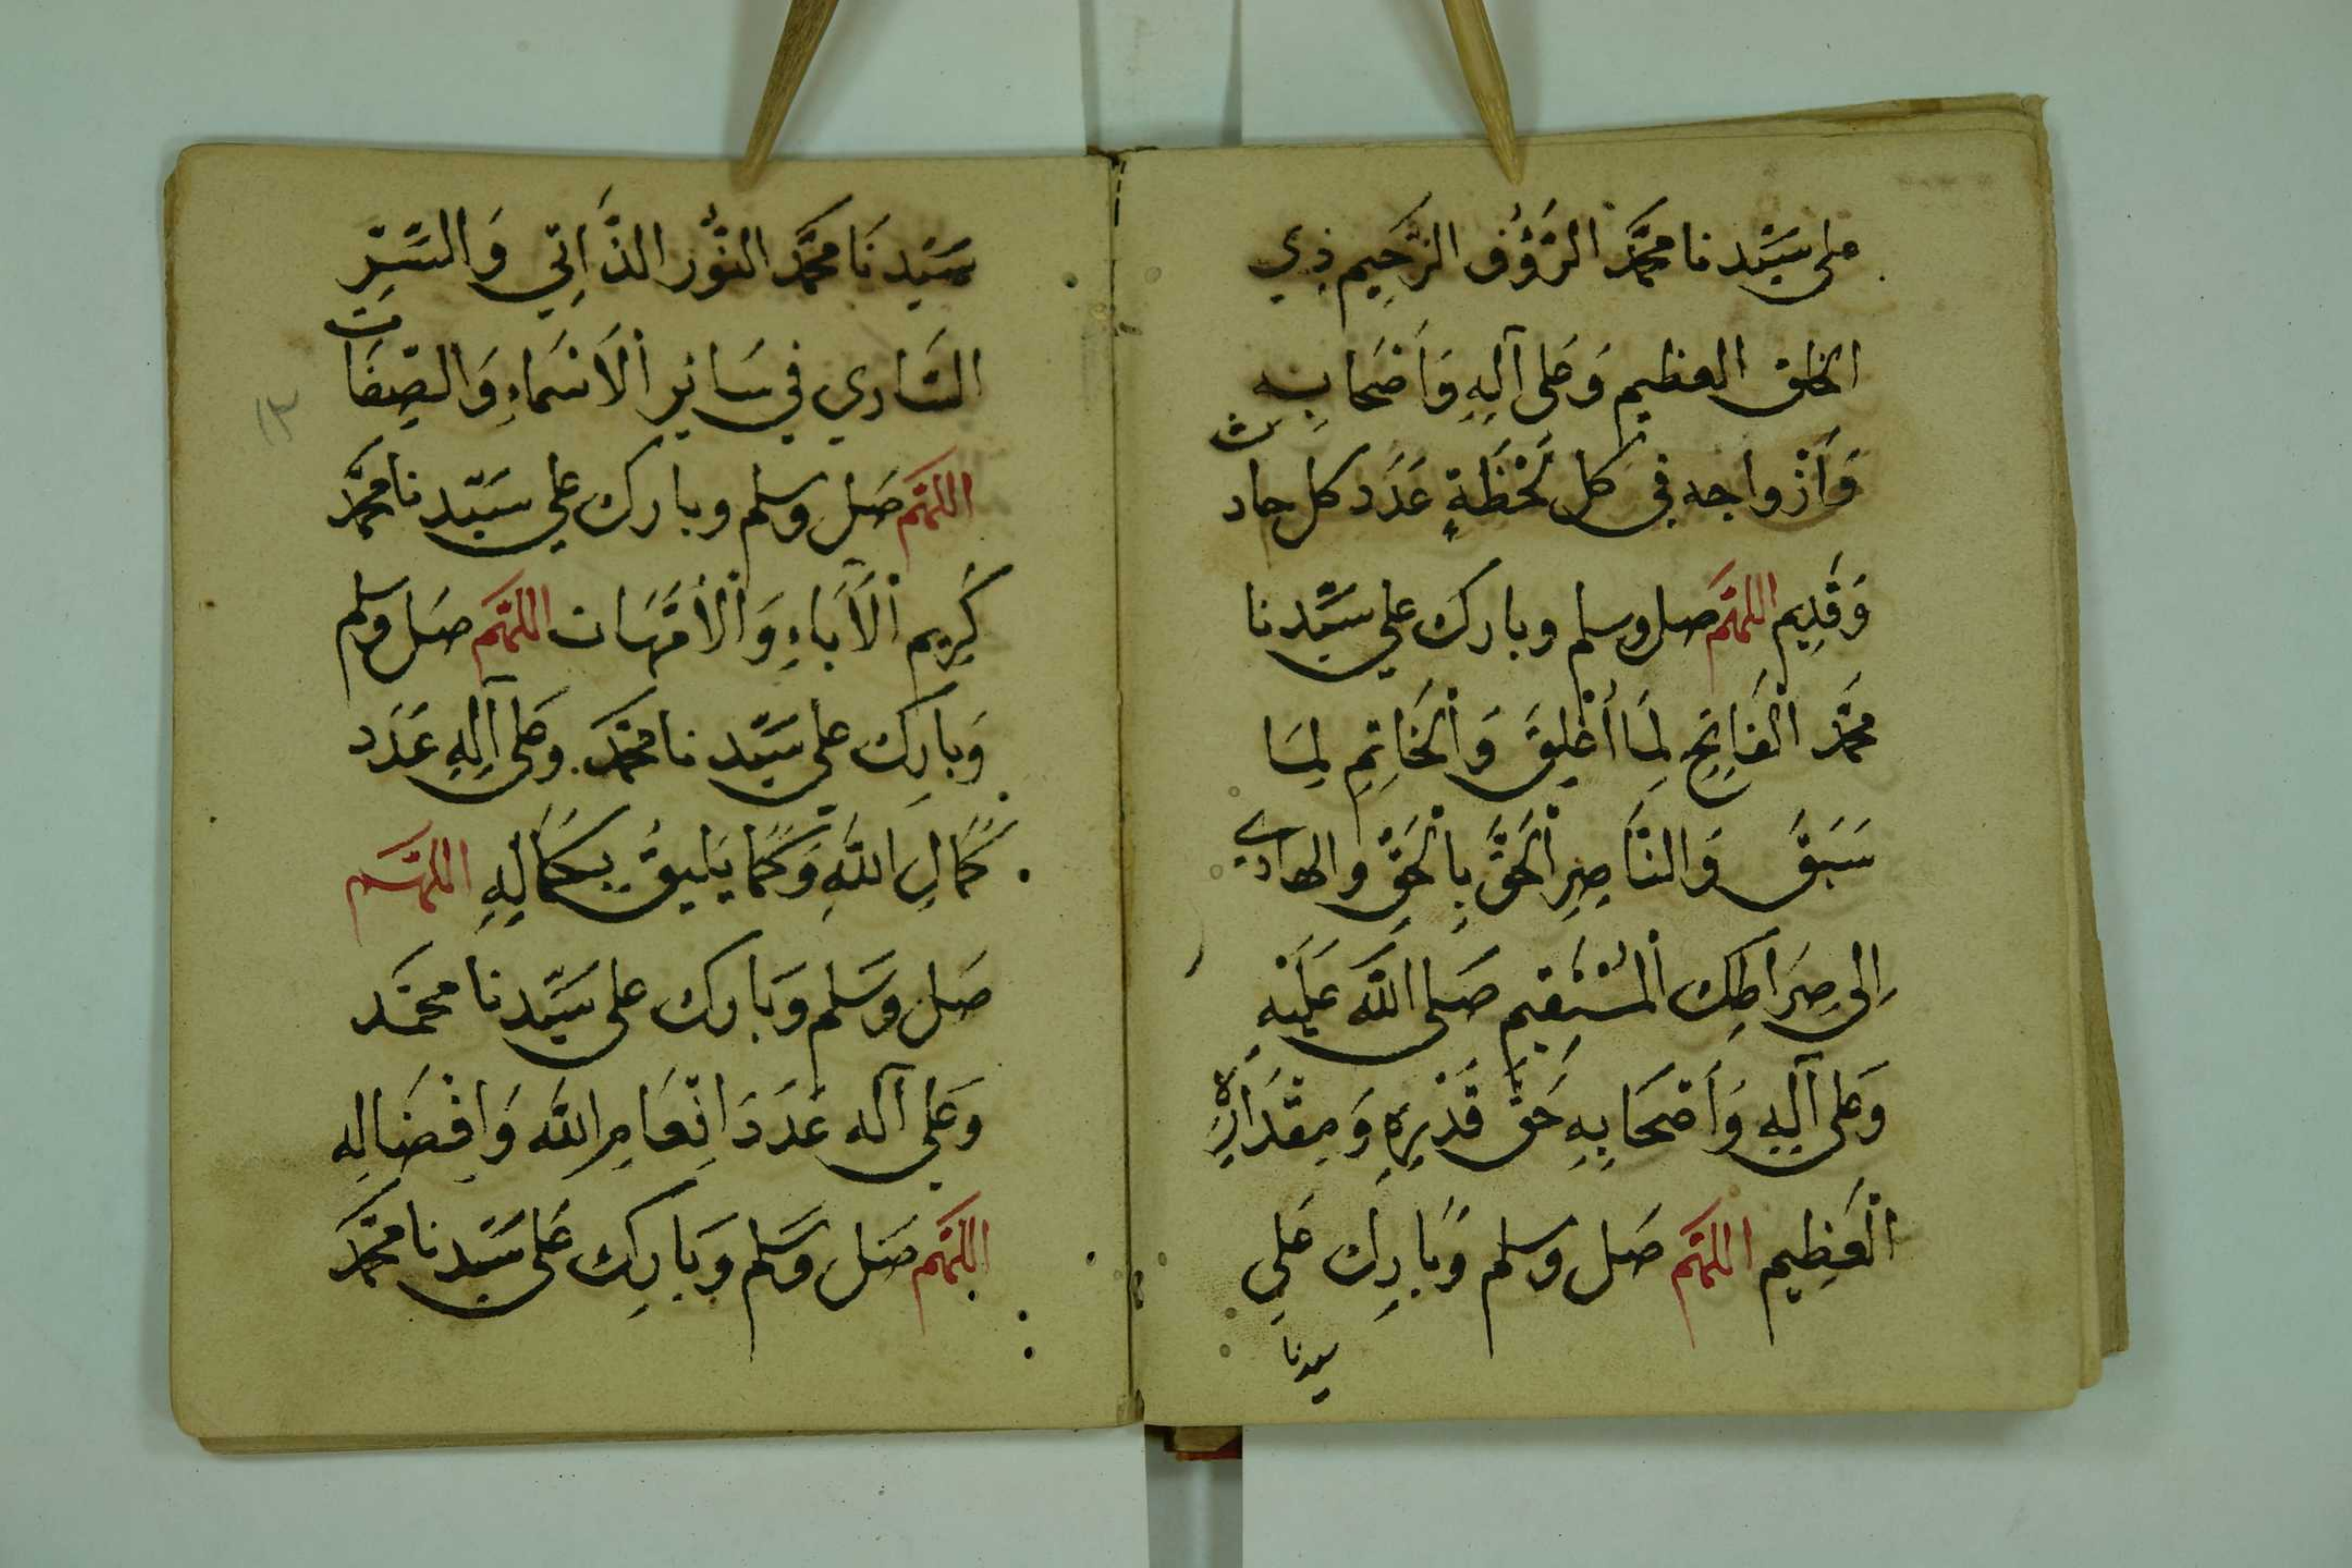 على سَيِّدنا محمَّد الرَّؤُف الرَّحِيم ذِي
الخلق العظيم وَعَلى آلِهِ وَاَصْحَابِهِ
وَأَزْواجه في كل لَحْظَةٍ عَدَد كل حادث
وَقَدِيم اللهُمَّ صل وسلم وبارك على سَيِّدنا
محمَّد الْفَاتِحِ لِمَا أُغْلِقَ وَالْخَاتِمِ لِمَا
سَبَقَ وَالنَّاصِرِ الْحَقَّ بِالْحَقِّ والهادي
اِلى صِرَاطِك الْمُسْتَقِيم صَلى اللَّه عَلَيْهِ
وَعَلى آلِهِ وَأَصْحَابِهِ حَقَّ قَدْرِهِ وَمِقْدَارِهِ
الْعَظِيم اللهُمَّ صَل وسلم وَبَارِك عَلى
سيدنا
سَيِّدنَا محمَّد النُّور الذَّاتِي وَالسِّرِّ
السَّارِي في سَائر الْاَسْمَاءِ وَالصِّفَات
١٣
اللهُمَّ صَل وسلم وبارك على سَيِّدنا محمَّد
كَرِيم الْآبَاءِ وَالْأُمَّهَات اللهُمَّ صَل وسلم
وَبارِك على سَيِّدنا محمَّد وعَلى آلِهِ عَدَد
كَمَالِ اللَّهِ وَكَمَا يَلِيقُ بِكَمَالِهِ اللهُمَّ
صَل وَسَلم وَبَارك على سَيِّدنا محمَّد
وَعَلى آله عَدَدَ اِنْعَامِ اللَّه وَاِفْضَالِه
اللهُمَّ صَل وَسَلم وَبَارِك عَلى سَيِّدنا محمَّد